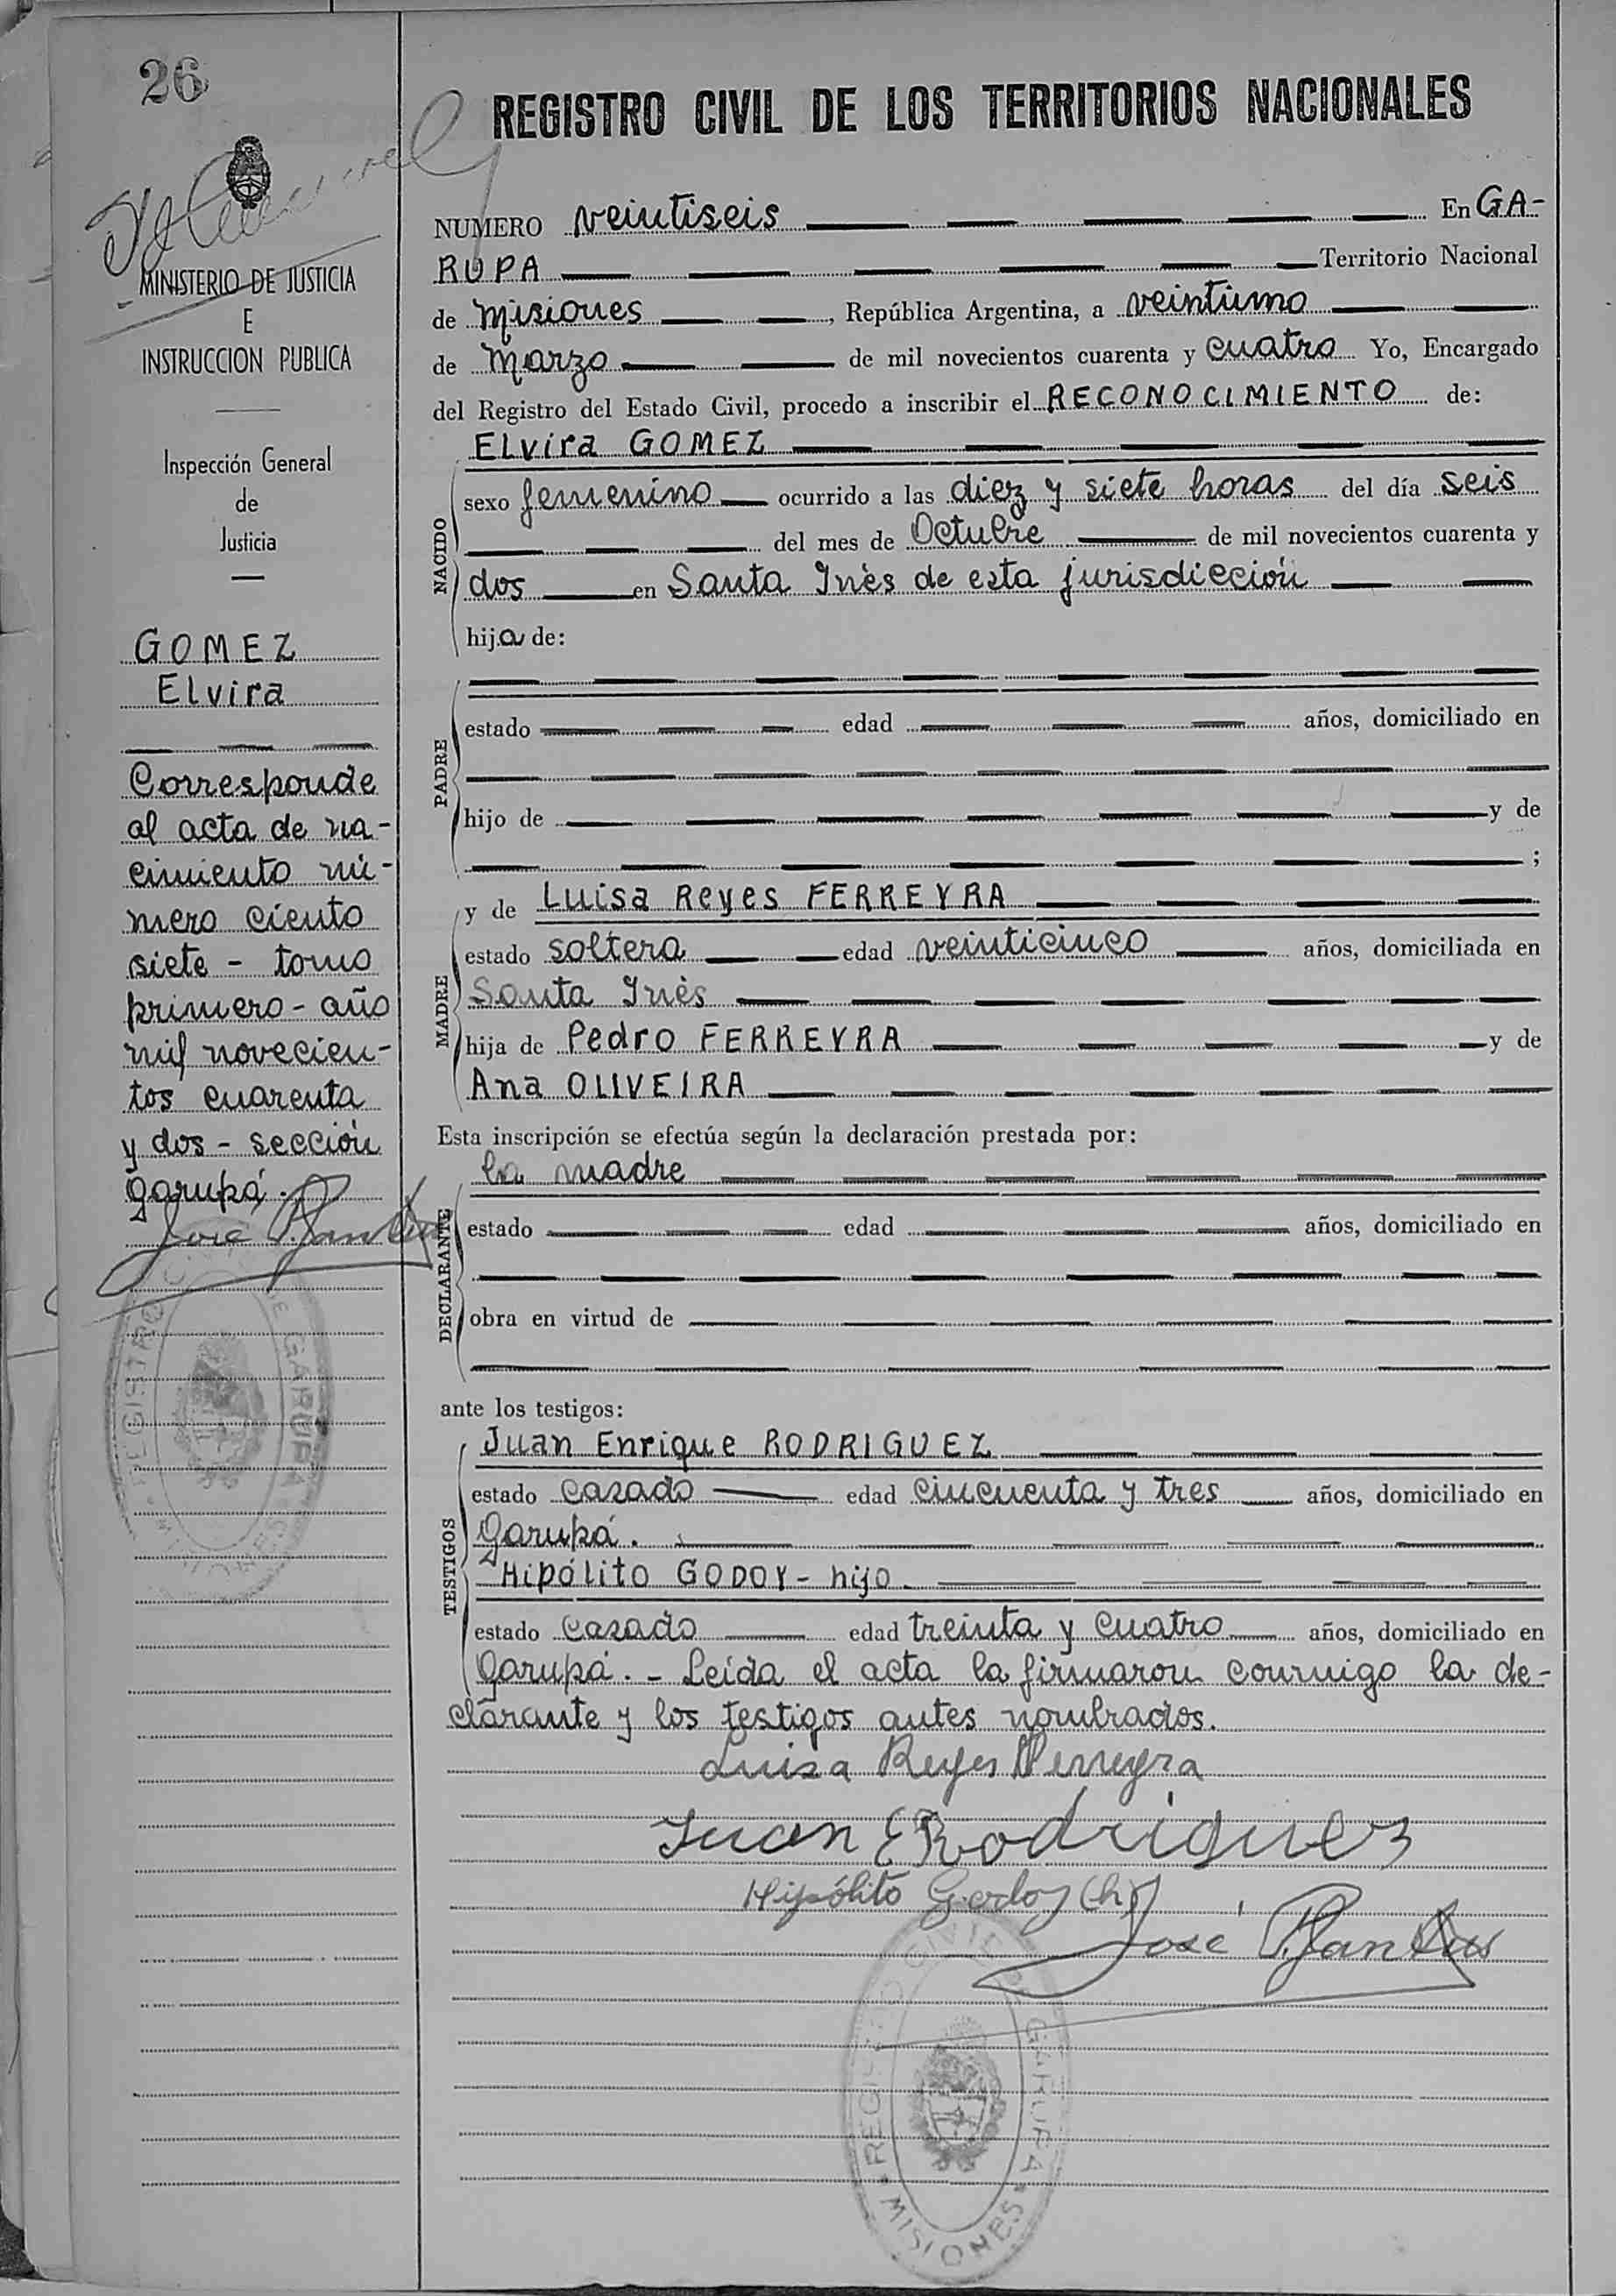 26
REGISTRO CIVIL DE LOS TERRITORIOS NACIONALES
MINISTERIO DE JUSTICIA
E
INSTRUCCION PUBLICA
Inspección General
de
Justicia
GOMEZ
Elvira
Corresponde
al acta de na-
cimiento nú-
mero ciento
siete - tomo
primero - año
mil novecien-
tos cuarenta
y dos - sección
Garupá.
José
NUMERO veintiseis En GA-
RUPA Territorio Nacional
de Misiones, República Argentina, a veintiuno
de Marzo de mil novecientos cuarenta y cuatro Yo, Encargado
del Registro del Estado Civil, procedo a inscribir el RECONOCIMIENTO de:
Elvira GOMEZ
NACIDO
sexo femenino ocurrido a las diez y siete horas del día seis
del mes de Octubre de mil novecientos cuarenta y
dos en Santa Inès de esta jurisdicción
hija de:
PADRE
estado edad años, domiciliado en
hijo de y de
;
MADRE
y de Luisa Reyes FERREYRA
estado soltera edad veinticinco años, domiciliada en
Santa Inès
hija de Pedro FERREYRA y de
Ana OLIVEIRA
Esta inscripción se efectúa según la declaración prestada por:
la madre
DECLARANTE
estado edad años, domiciliado en
obra en virtud de
ante los testigos:
TESTIGOS
Juan Enrique RODRIGUEZ
estado casado edad cincuenta y tres años, domiciliado en
Garupá.
Hipólito GODOY - hijo.
estado casado edad treinta y cuatro años, domiciliado en
Garupá. - Leída el acta la firmaron conmigo la de-
clarante y los testigos antes nombrados.
Luisa Reyes Ferreyra
Juan E Rodriguez
Hipólito Godoy (h)
José
REGISTRO CIVIL DE GARUPA
MISIONES